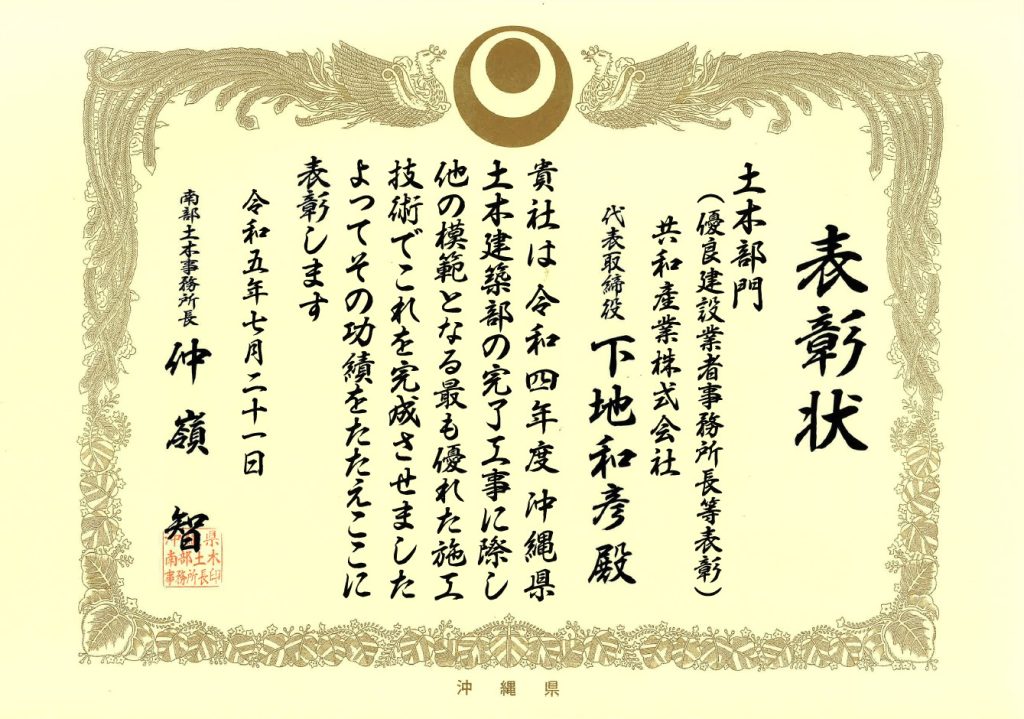 表彰状
土木部門
（優良建設業者事務所長等表彰）
共和産業株式会社
代表取締役 下地和彦殿
貴社は令和四年度沖縄県
土木建築部の完了工事に際し
他の模範となる最も優れた施工
技術でこれを完成させました
よってその功績をたたえここに
表彰します
令和五年七月二十一日
南部土木事務所長 仲嶺 智
沖縄県
南部土木
事務所長印
沖縄県